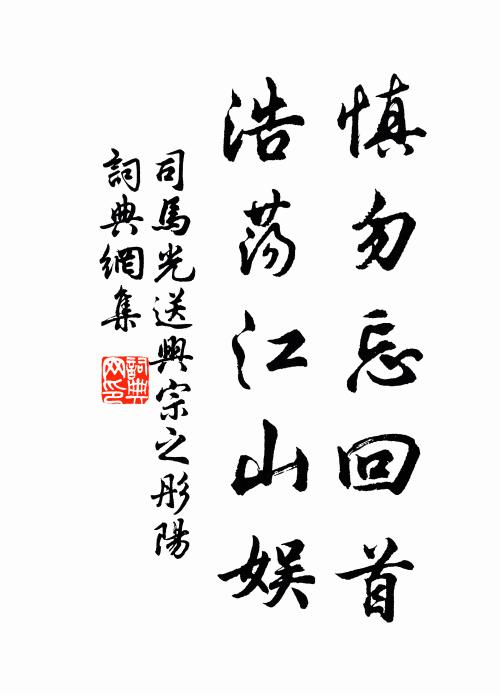 慎勿忘回首
浩荡江山娱
司馬光送興宗之彤陽
詞典網集
詞典網印